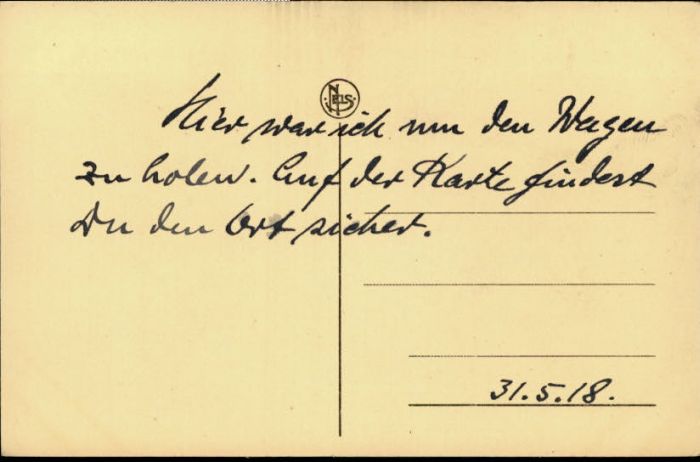 NELS
Hier war ich um den Wagen
zu holen. Auf der Karte findest
Du den Ort sicher.
31.5.18.